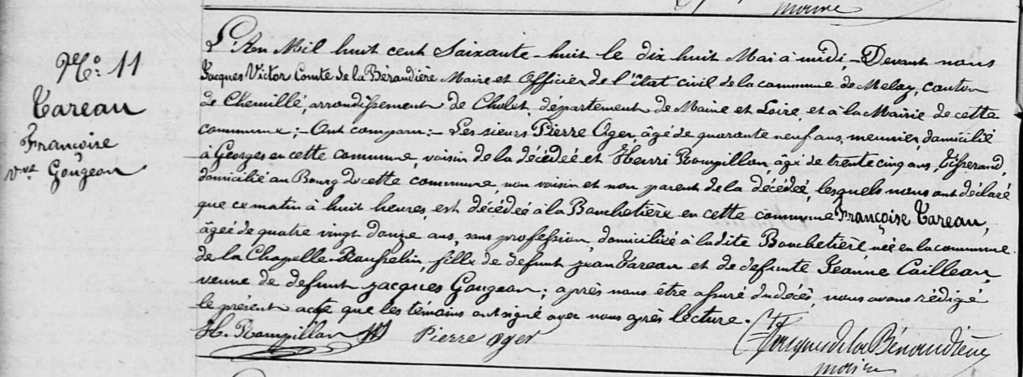 maire
No. 11
Tareau
Françoise
vve. Gougeon
L'An Mil huit cent Soixante-huit le dix huit Mai à midi, Devant nous
Jacques Victor Comte de la Béraudière Maire et officier de l'état civil de la commune de Melay, canton
de Chemillé, arrondissement de Cholet, département de Maine et Loire, et à la Mairie de cette
commune; - Ont comparu: - Les sieurs Pierre Oger âgé de quarante neuf ans, meunier, domicilié
à Georges en cette commune, voisin de la décédée et Henri Rompillon âgé de trente cinq ans, Tisserand,
domicilié au Bourg de cette commune, non voisin et non parent de la décédée, lesquels nous ont déclaré
que ce matin à huit heures, est décédée à la Bouchetière en cette commune Françoise Tareau,
âgée de quatre vingt douze ans, sans profession, domiciliée à ladite Bouchetière née en la commune
de la Chapelle-Rousselin, fille de défunt Jean Tareau et de defunte Jeanne Cailleau,
veuve de defunt Jacques Gougeon; après nous être assuré du decès, nous avons rédigé
le présent acte que les témoins ont signé avec nous après lecture.
H. Rompillon Pierre Oger Cte Jacques de la Béraudière
maire